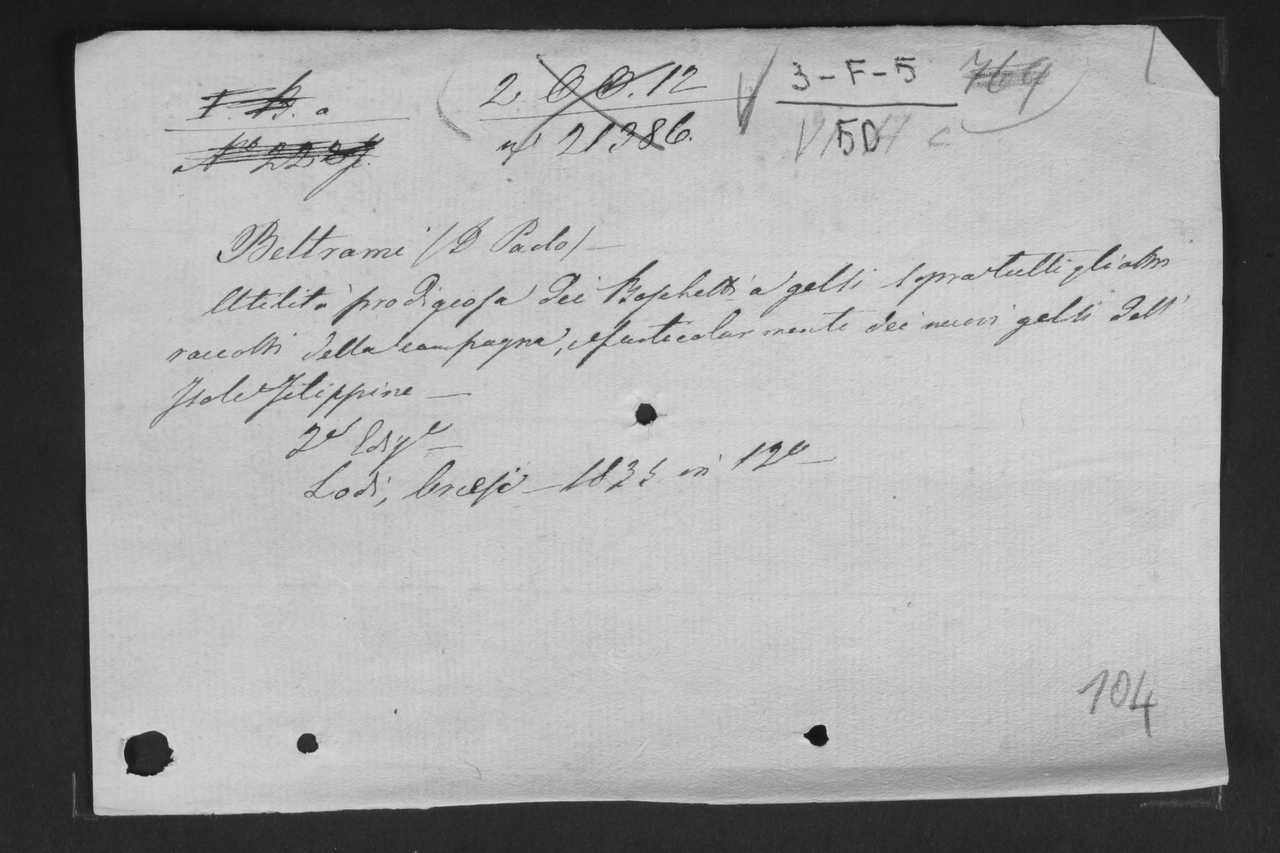 2 O O. 12
3-F-5
n° 21386.
50
Beltrami (D Paolo) —
Utilità prodigiosa dei Boschetti a gelsi sopra tutti gli altri
raccolti della campagna, e particolarmente dei nuovi gelsi dell'
Isole Filippine —
2ª Ediz.e —
Lodi, Orcesi — 1835 in 12° —
104